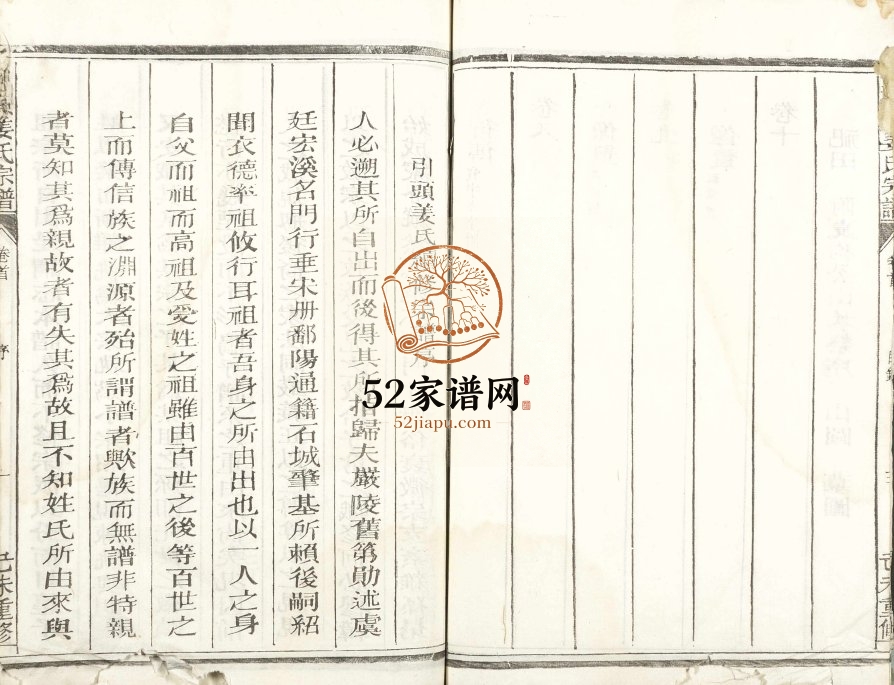 引頭姜氏
序
人必遡其所自出而後得其所指歸夫嚴陵舊第勛述虞
廷宏溪名門行垂宋册鄱陽通籍石城肇基所賴後嗣紹
聞衣德率祖攸行耳祖者吾身之所由出也以一人之身
自父而祖而高祖及受姓之祖雖由百世之後等百世之
上而傳信族之淵源者殆所謂譜者歟族而無譜非特親
者莫知其為親故者有失其為故且不知姓氏所由來與
姜氏宗譜
卷首
序
一
己未重修
52家谱网
52jiapu.com